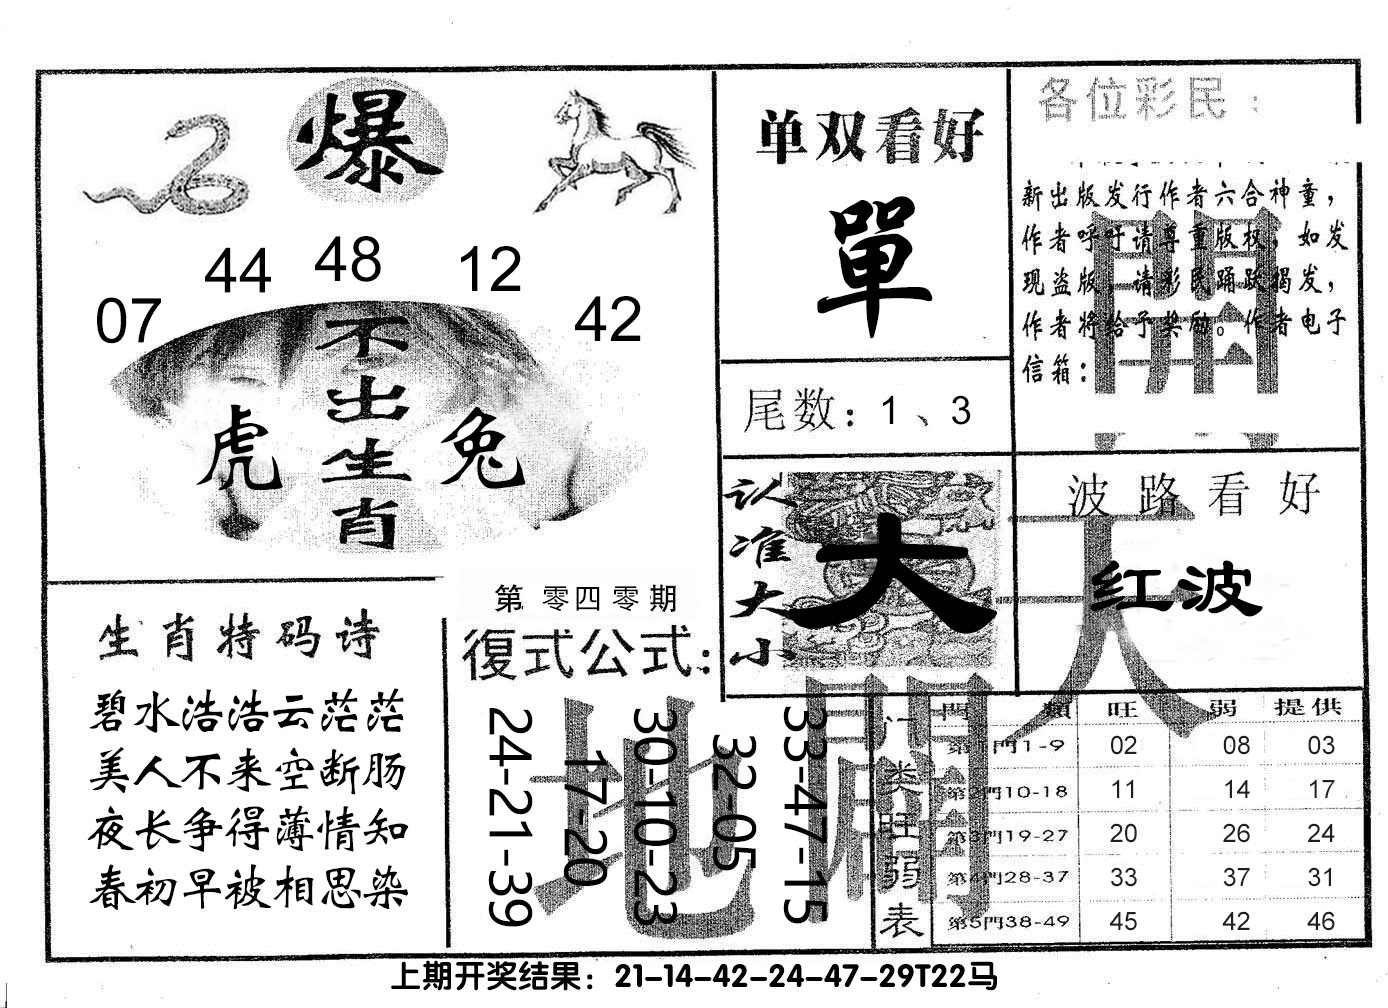 爆
44 48 12
07 42
不出生肖
虎 兔
单双看好
單
尾数：1、3
各位彩民：
新出版发行作者六合神童，
作者呼吁请尊重版权，如发
现盗版，请彩民踊跃揭发，
作者将给予奖励。作者电子
信箱：
開
认准大小
大
波路看好
红波
天
生肖特码诗
碧水浩浩云茫茫
美人不来空断肠
夜长争得薄情知
春初早被相思染
第零四零期
復式公式：
24-21-39
17-20
30-10-23
32-05
33-47-15
地
開
门类旺弱表
門類 旺 弱 提供
第1門1-9 02 08 03
第2門10-18 11 14 17
第3門19-27 20 26 24
第4門28-37 33 37 31
第5門38-49 45 42 46
上期开奖结果：21-14-42-24-47-29T22马